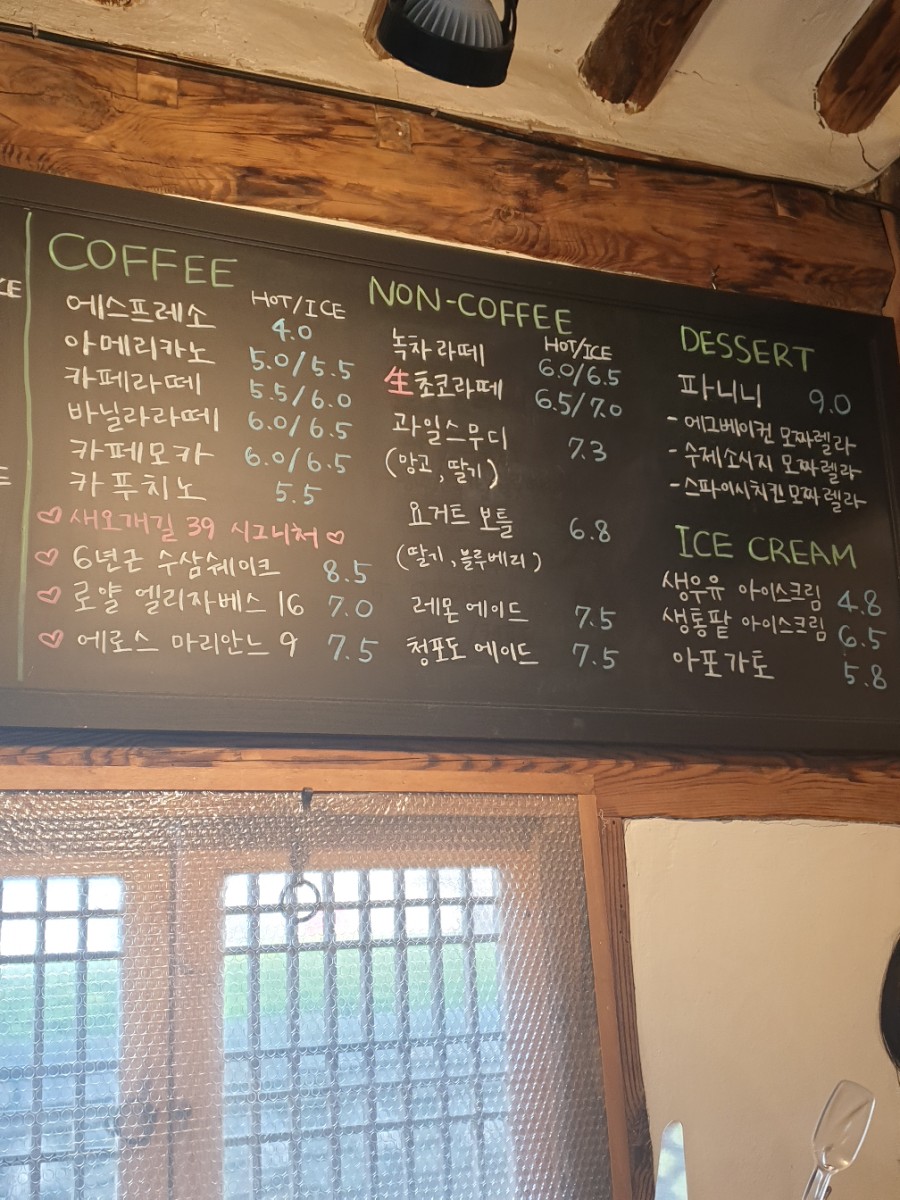 COFFEE
HOT/ICE
에스프레소 4.0
아메리카노 5.0/5.5
카페라떼 5.5/6.0
바닐라라떼 6.0/6.5
카페모카 6.0/6.5
카푸치노 5.5
♡ 새오개길 39 시그니처 ♡
♡ 6년근 수삼쉐이크 8.5
♡ 로얄 엘리자베스 16 7.0
♡ 에로스 마리안느 9 7.5
NON-COFFEE
HOT/ICE
녹차라떼 6.0/6.5
生초코라떼 6.5/7.0
과일스무디 7.3
(망고, 딸기)
요거트 보틀 6.8
(딸기, 블루베리)
레몬에이드 7.5
청포도 에이드 7.5
DESSERT
파니니 9.0
- 에그베이컨 모짜렐라
- 수제소시지 모짜렐라
- 스파이시치킨 모짜렐라
ICE CREAM
생우유 아이스크림 4.8
생통팥 아이스크림 6.5
아포가토 5.8